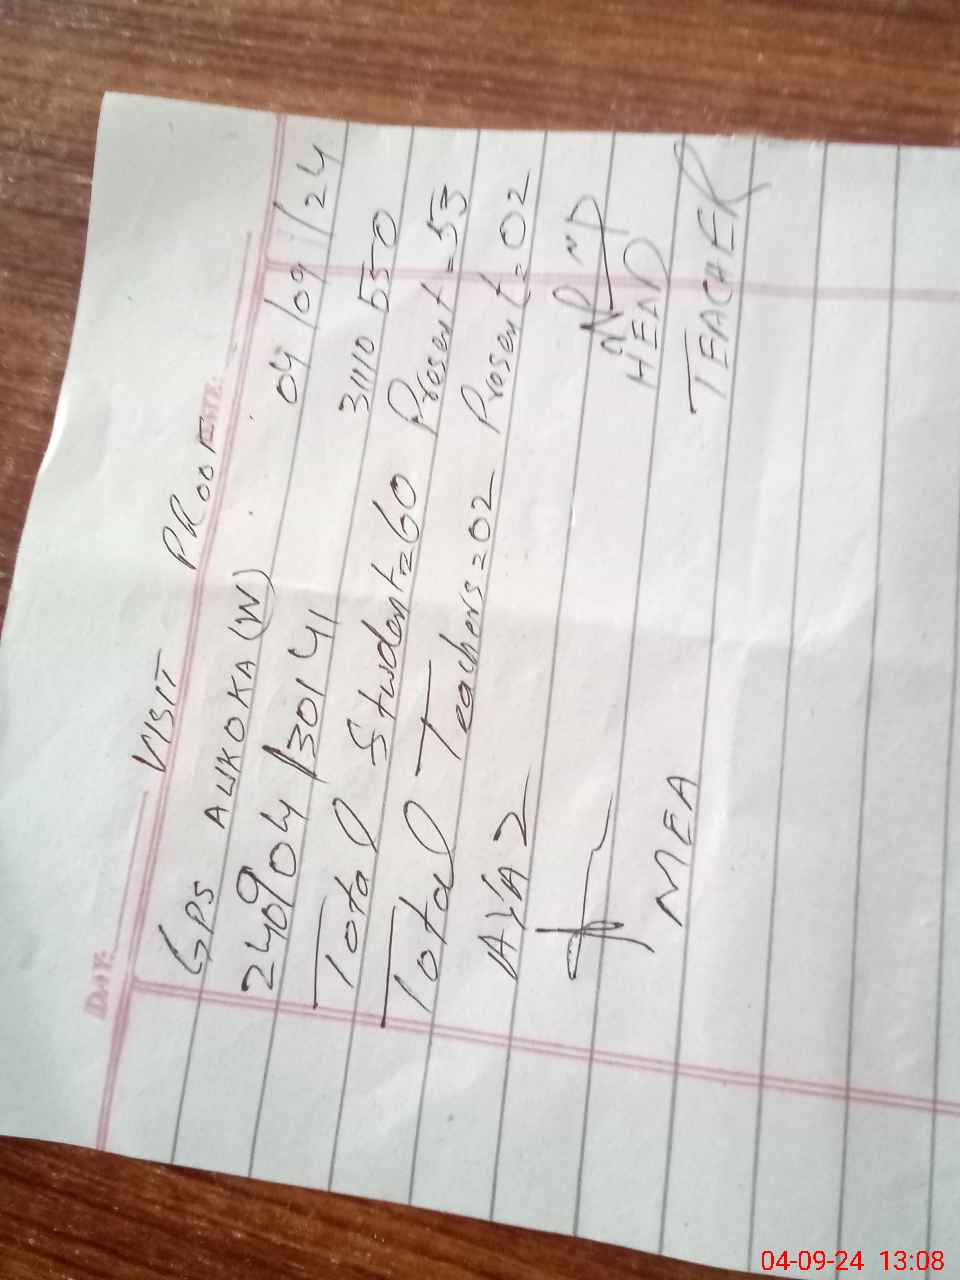 DAY: DATE:
VISIT PROOF
GPS AUKOKA (W) 04/09/24
24904/30141 3110550
Total Student=60 Present=53
Total Teachers=02 Present=02
AYAZ
MEA HEAD
TEACHER
04-09-24 13:08